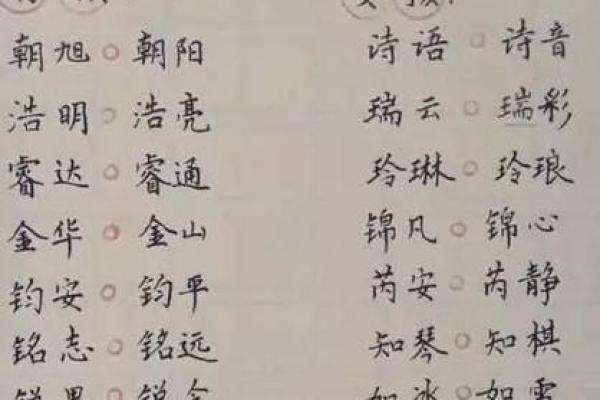 朝旭○朝阳 诗语○诗音
浩明○浩亮 瑞云○瑞彩
睿达○睿通 玲琳○玲琅
金华○金山 锦凡○锦心
钧安○钧平 芮安○芮静
铭志○铭远 知琴○知棋